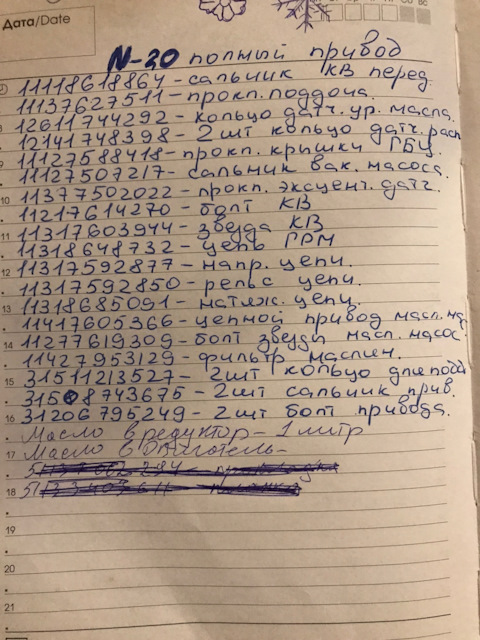 Дата/Date
N-20 полный привод
11118618864 - сальник КВ перед.
11137627511 - прокл. поддона
12611744292 - кольцо датч. ур. масла.
12141748398 - 2шт кольцо датч. расп
11127588418 - прокл. крышки ГБЦ.
11127507217 - сальник вак. насоса.
11377502022 - прокл. эксцент. датч.
11217614270 - болт КВ
11317603944 - звезда КВ
11318648732 - цепь ГРМ
11317592877 - напр. цепи.
11317592850 - рельс цепи.
11318685091 - натяж. цепи.
11417605366 - цепной привод масл. на
11277619309 - болт звезды масл. насос.
11427953129 - фильтр маслян.
31511213527 - 2шт кольцо для подв
31508743675 - 2шт сальник прив.
31206795249 - 2шт болт привода.
Масло в редуктор - 1 литр
Масло в Двигатель -
10
11
12
13
14
15
16
17
18
19
20
21